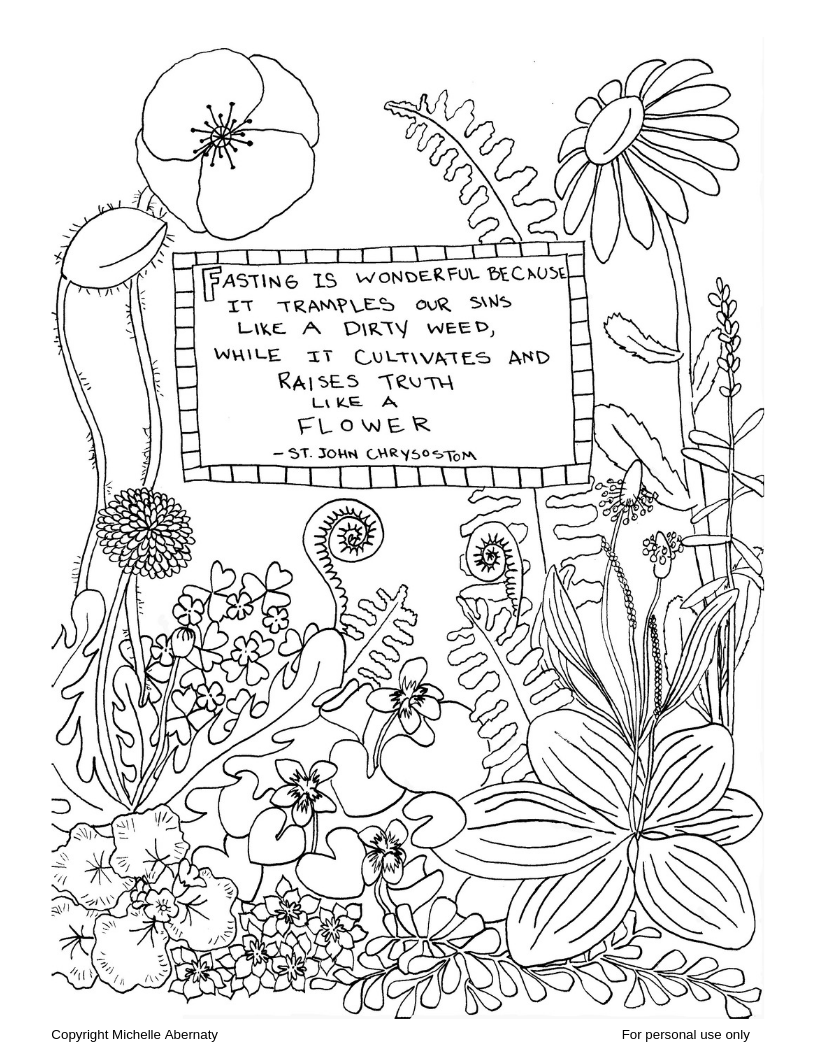 FASTING IS WONDERFUL BECAUSE
IT TRAMPLES OUR SINS
LIKE A DIRTY WEED,
WHILE IT CULTIVATES AND
RAISES TRUTH
LIKE A
FLOWER
-ST. JOHN CHRYSOSTOM
Copyright Michelle Abernaty
For personal use only